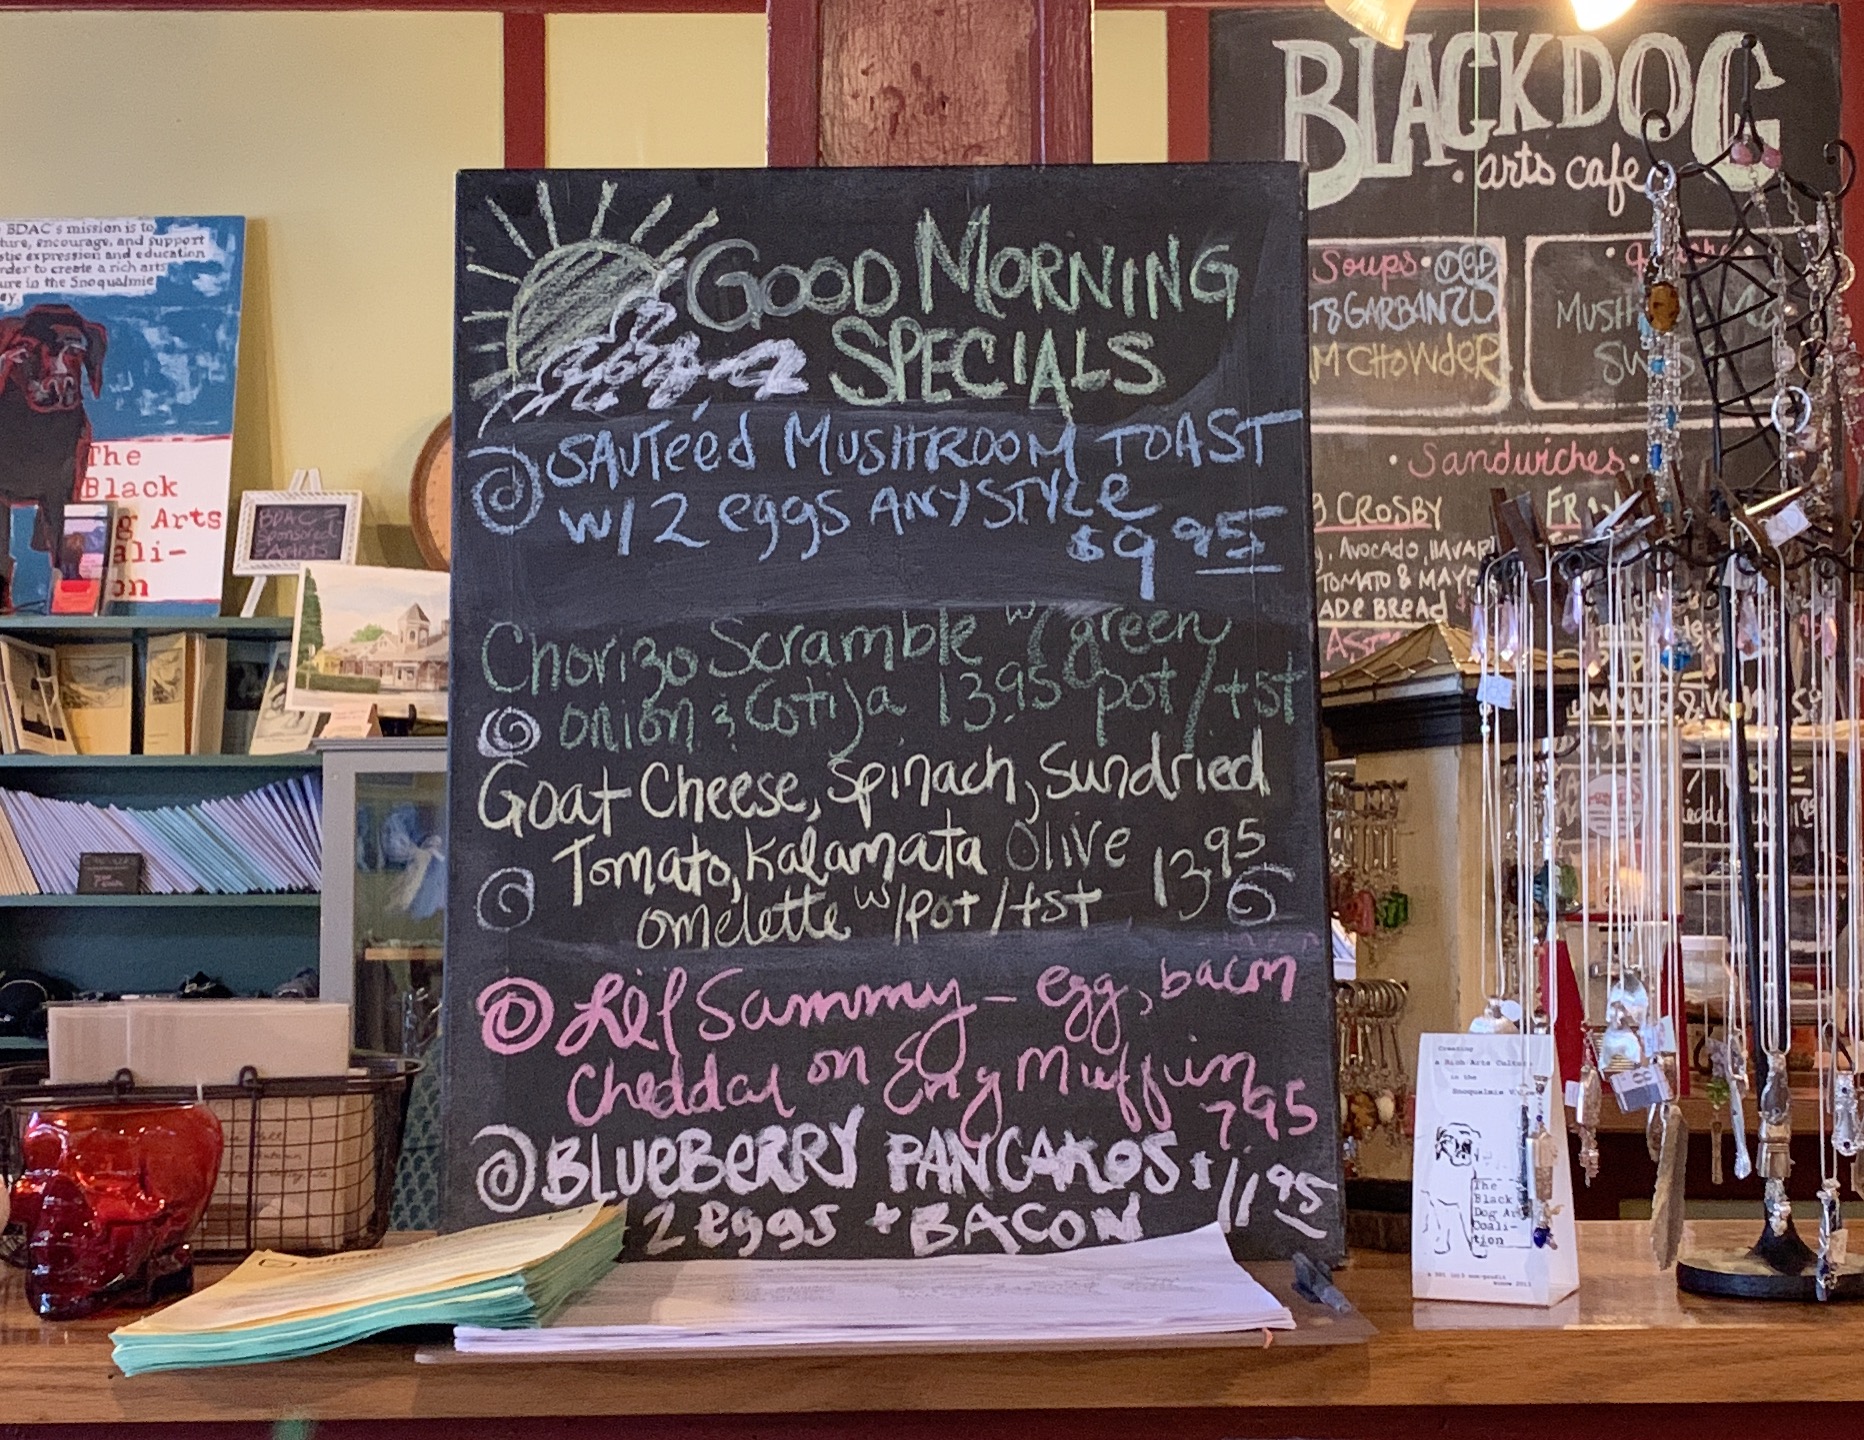 GOOD MORNING
SPECIALS
SAUTEéd MUSHROOM TOAST
W/ 2 eggs ANY STYLe
$9 95
Chorizo Scramble w/ green
onion & Cotija 13.95 pot/tst
Goat Cheese, Spinach, Sundried
Tomato, Kalamata Olive 13.95
omelette w/pot/tst
Lil Sammy - egg, bacon
Cheddar on Eng Muffin
7.95
BLUeBeRRY PANCAKeS +
2 eggs + BACON 11 95
BLACKDOG
arts cafe
Soups
GARBANZO
CHOWDER
MUSH
Sandwiches
CROSBY
AVOCADO, HAVAR
TOMATO & MAYO
ADE BREAD
BDAC's mission is to
ture, encourage, and support
stic expression and education
rder to create a rich arts
ure in the Snoqualmie
The
Black
g Arts
ali-
on
BDAC
Sponsored
Artists
Creating
a Rich Arts Cultu
in the
Snoqualmie V
The
Black
Dog Ar
Coali-
tion